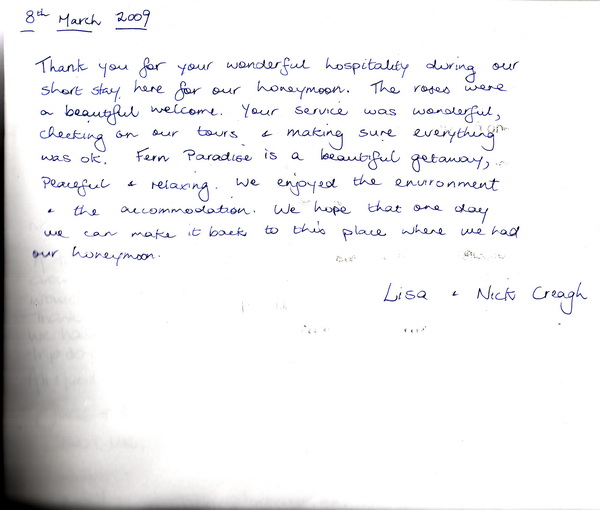 8th March 2009
Thank you for your wonderful hospitality during our
short stay here for our honeymoon. The roses were
a beautiful welcome. Your service was wonderful,
checking on our tours & making sure everything
was ok. Fern Paradise is a beautiful getaway,
Peaceful & relaxing. We enjoyed the environment
& the accommodation. We hope that one day
we can make it back to this place where we had
our honeymoon.
Lisa & Nick Creagh